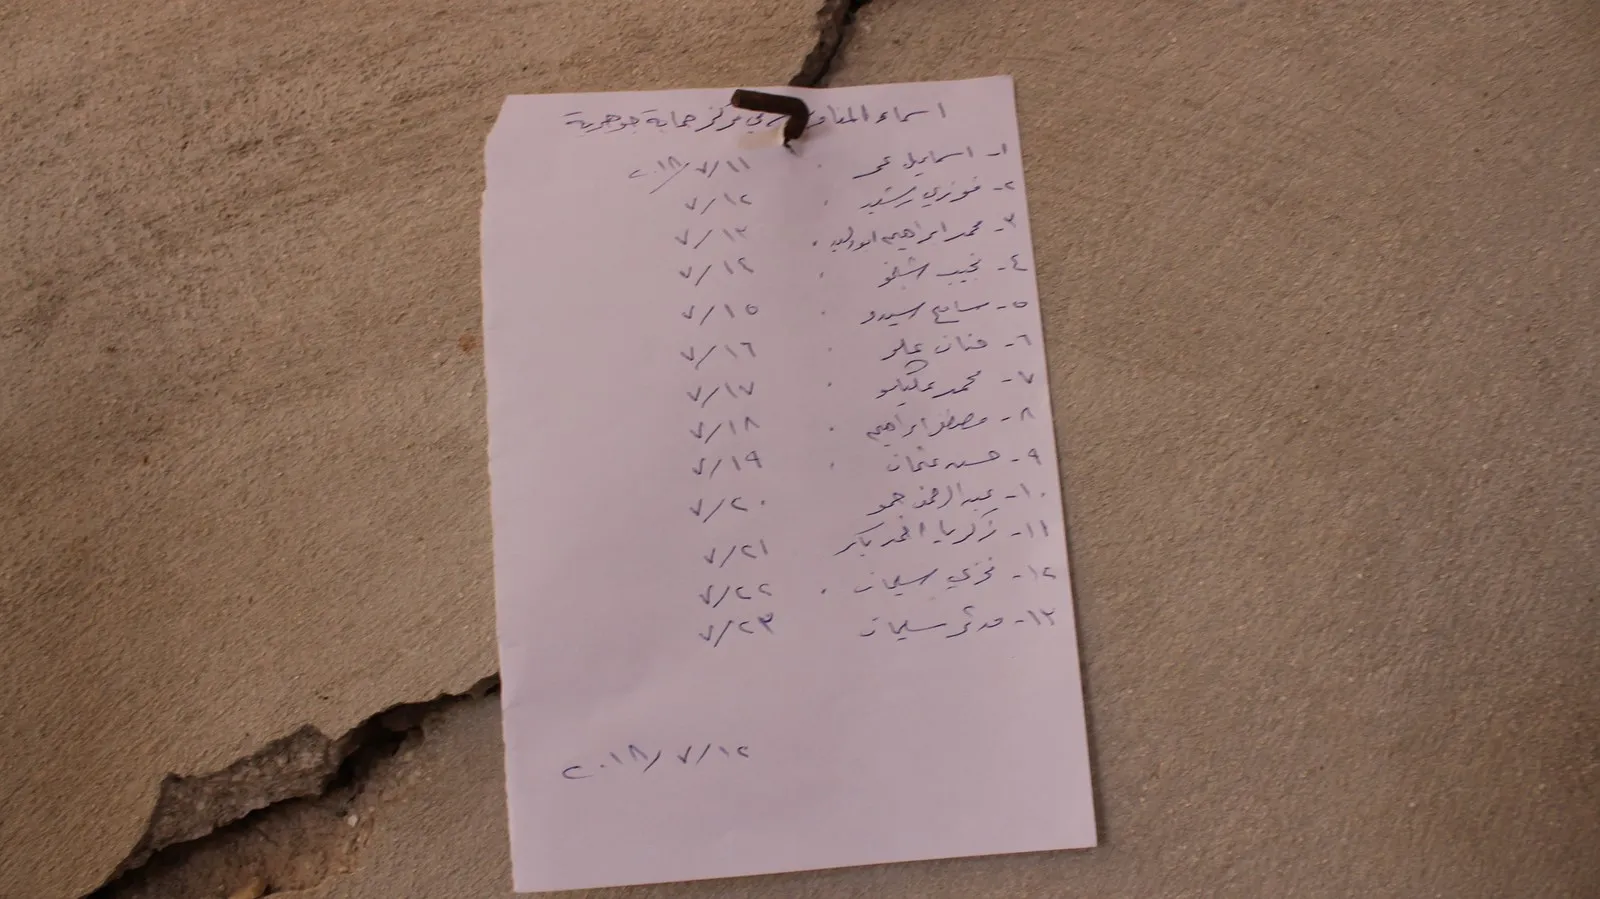 اسماء المناو في مركز حماية جوهرية
١- اسماعيل عمر ٧/١١/٢٠١٨
٢- فوزي رشيد ٧/١٢
٣- محمد ابراهيم ٧/١٣
٤- نجيب شيخو ٧/١٤
٥- سامح سيدو ٧/١٥
٦- حنان علو ٧/١٦
٧- محمد ٧/١٧
٨- مصطفى ابراهيم ٧/١٨
٩- حسين عثمان ٧/١٩
١٠- عبد الرحمن حمو ٧/٢٠
١١- زكريا احمد بكر ٧/٢١
١٢- فخري سليمان ٧/٢٢
١٣- مدثر سليمان ٧/٢٣
٢٠١٨/٧/١٢